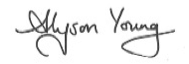 Allyson Young